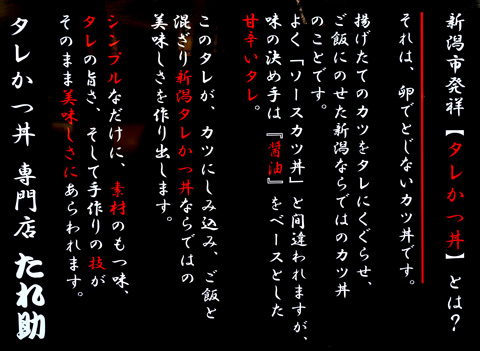 新潟市発祥【タレかつ丼】とは?
それは、卵でとじないカツ丼です。
揚げたてのカツをタレにくぐらせ、
ご飯にのせた新潟ならではのカツ丼
のことです。
よく「ソースカツ丼」と間違われますが、
味の決め手は『醤油』をベースとした
甘辛いタレ。
このタレが、カツにしみ込み、ご飯と
混ざり新潟タレかつ丼ならではの
美味しさを作り出します。
シンプルなだけに、素材のもつ味、
タレの旨さ、そして手作りの技が
そのまま美味しさにあらわれます。
タレかつ丼 専門店 たれ助